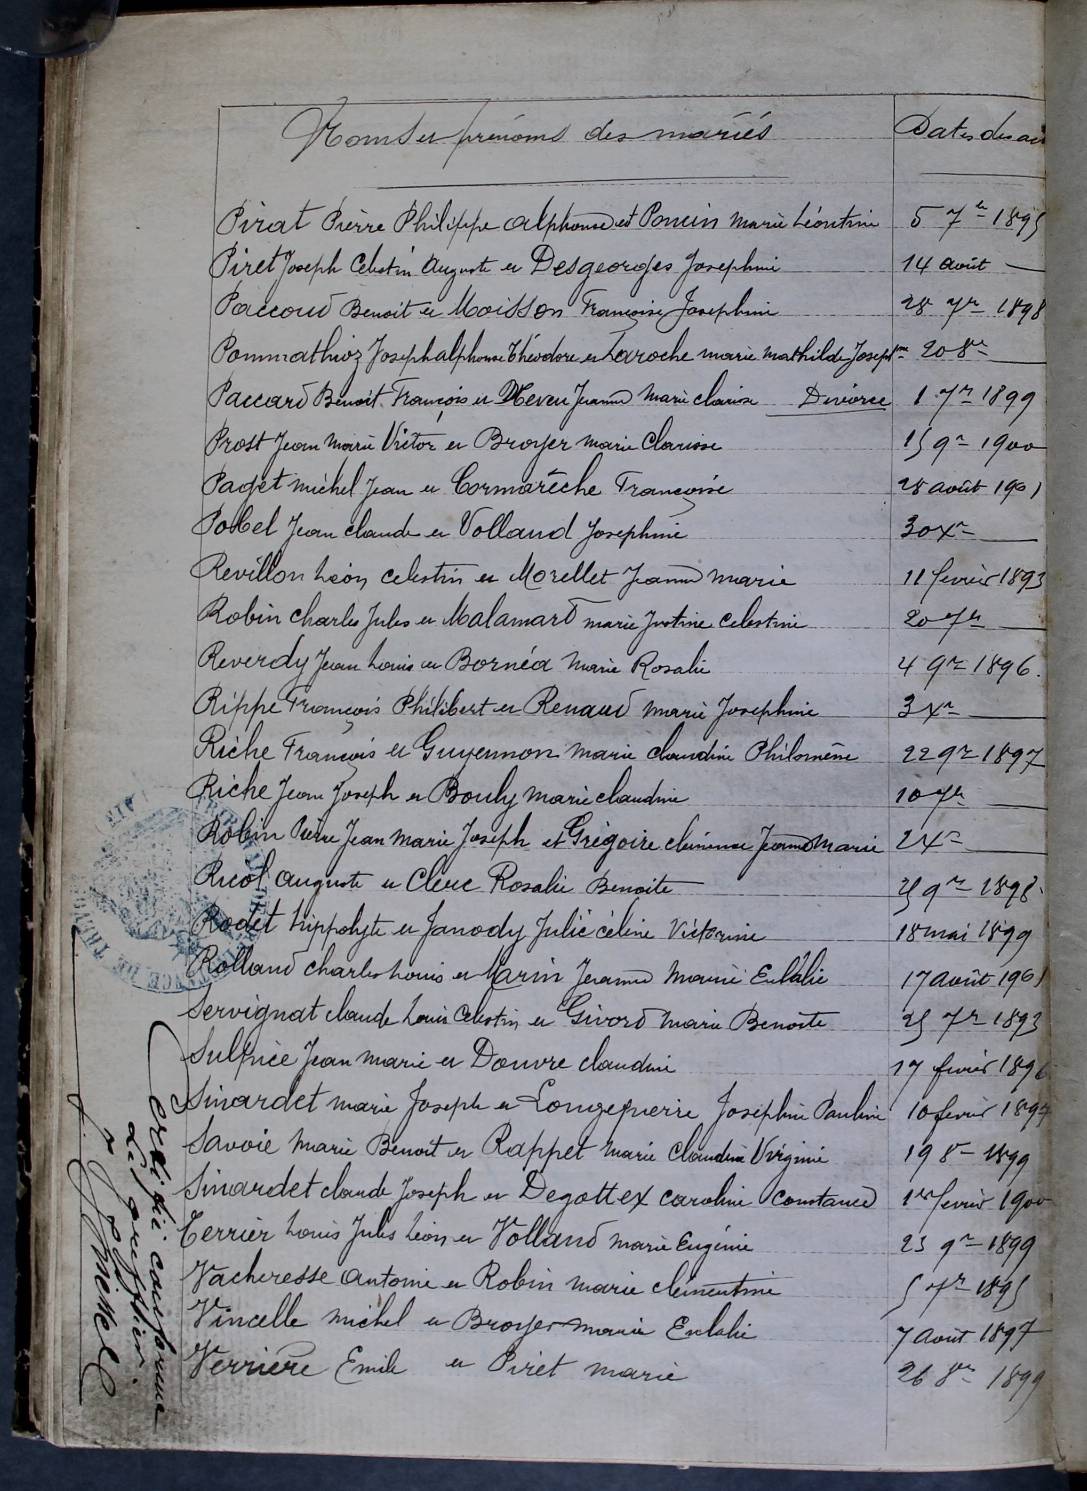 Noms et prénoms des mariés Dates des ac
Pirat Pierre Philippe Alphonse et Poncin Marie Léontine 5 7re 1895
Piret Joseph Celestin Auguste et Desgeorges Josephine 14 août —
Paccoud Benoit et Moisson Françoise Josephine 28 7re 1898
Pommathioz Joseph alphonse Théodore et Laroche marie mathilde Josephine 20 8re —
Paccard Benoit François et Neveu Jeanne Marie clarisse Divorce 1 7re 1899
Prost Jean Marie Victor et Broyer marie Clarisse 15 9re 1900
Paget michel Jean et Cormarèche Françoise 28 août 1901
Pobel Jean claude et Volland Josephine 30 Xre —
Revillon Léon celestin et Morellet Jeanne marie 11 fevrier 1893
Robin charles Jules et Malamard marie Justine celestine 20 7re —
Reverdy Jean Louis et Bornéa Marie Rosalie 4 9re 1896.
Rippe François Philibert et Renaud marie Josephine 3 Xre —
Riche François et Guyennon marie claudine Philomène 22 9re 1897
Riche Jean Joseph et Bouly marie claudine 10 7re —
Robin Pierre Jean Marie Joseph et Grégoire clémence Jeanne Marie 2 Xre —
Ricol auguste et Clerc Rosalie Benoite 25 9re 1898
Rodet hippolyte et Janody Julie céline Victorine 18 mai 1899
Rolland charles Louis et Marin Jeanne Marie Eulalie 17 Août 1901
Servignat claude Louis Celestin et Givord Marie Benoite 25 7re 1893
Sulpice Jean marie et Douvre claudine 17 fevrier 1896
Sinardet marie Joseph et Longepierre Joséphine Pauline 10 fevrier 1897
Savoie Marie Benoit et Rappet Marie Claudine Virginie 19 8re 1899
Sinardet claude Joseph et Degottex caroline Constance 1er fevrier 1900
Terrier Louis Jules Léon et Volland marie Eugénie 25 9re 1899
Vacheresse Antoine et Robin marie clémentine 5 7re 1895
Vincelle michel et Broyer marie Eulalie 7 Août 1897
Verrière Emile et Piret marie 26 8re 1899
Certifié conforme
Le greffier.